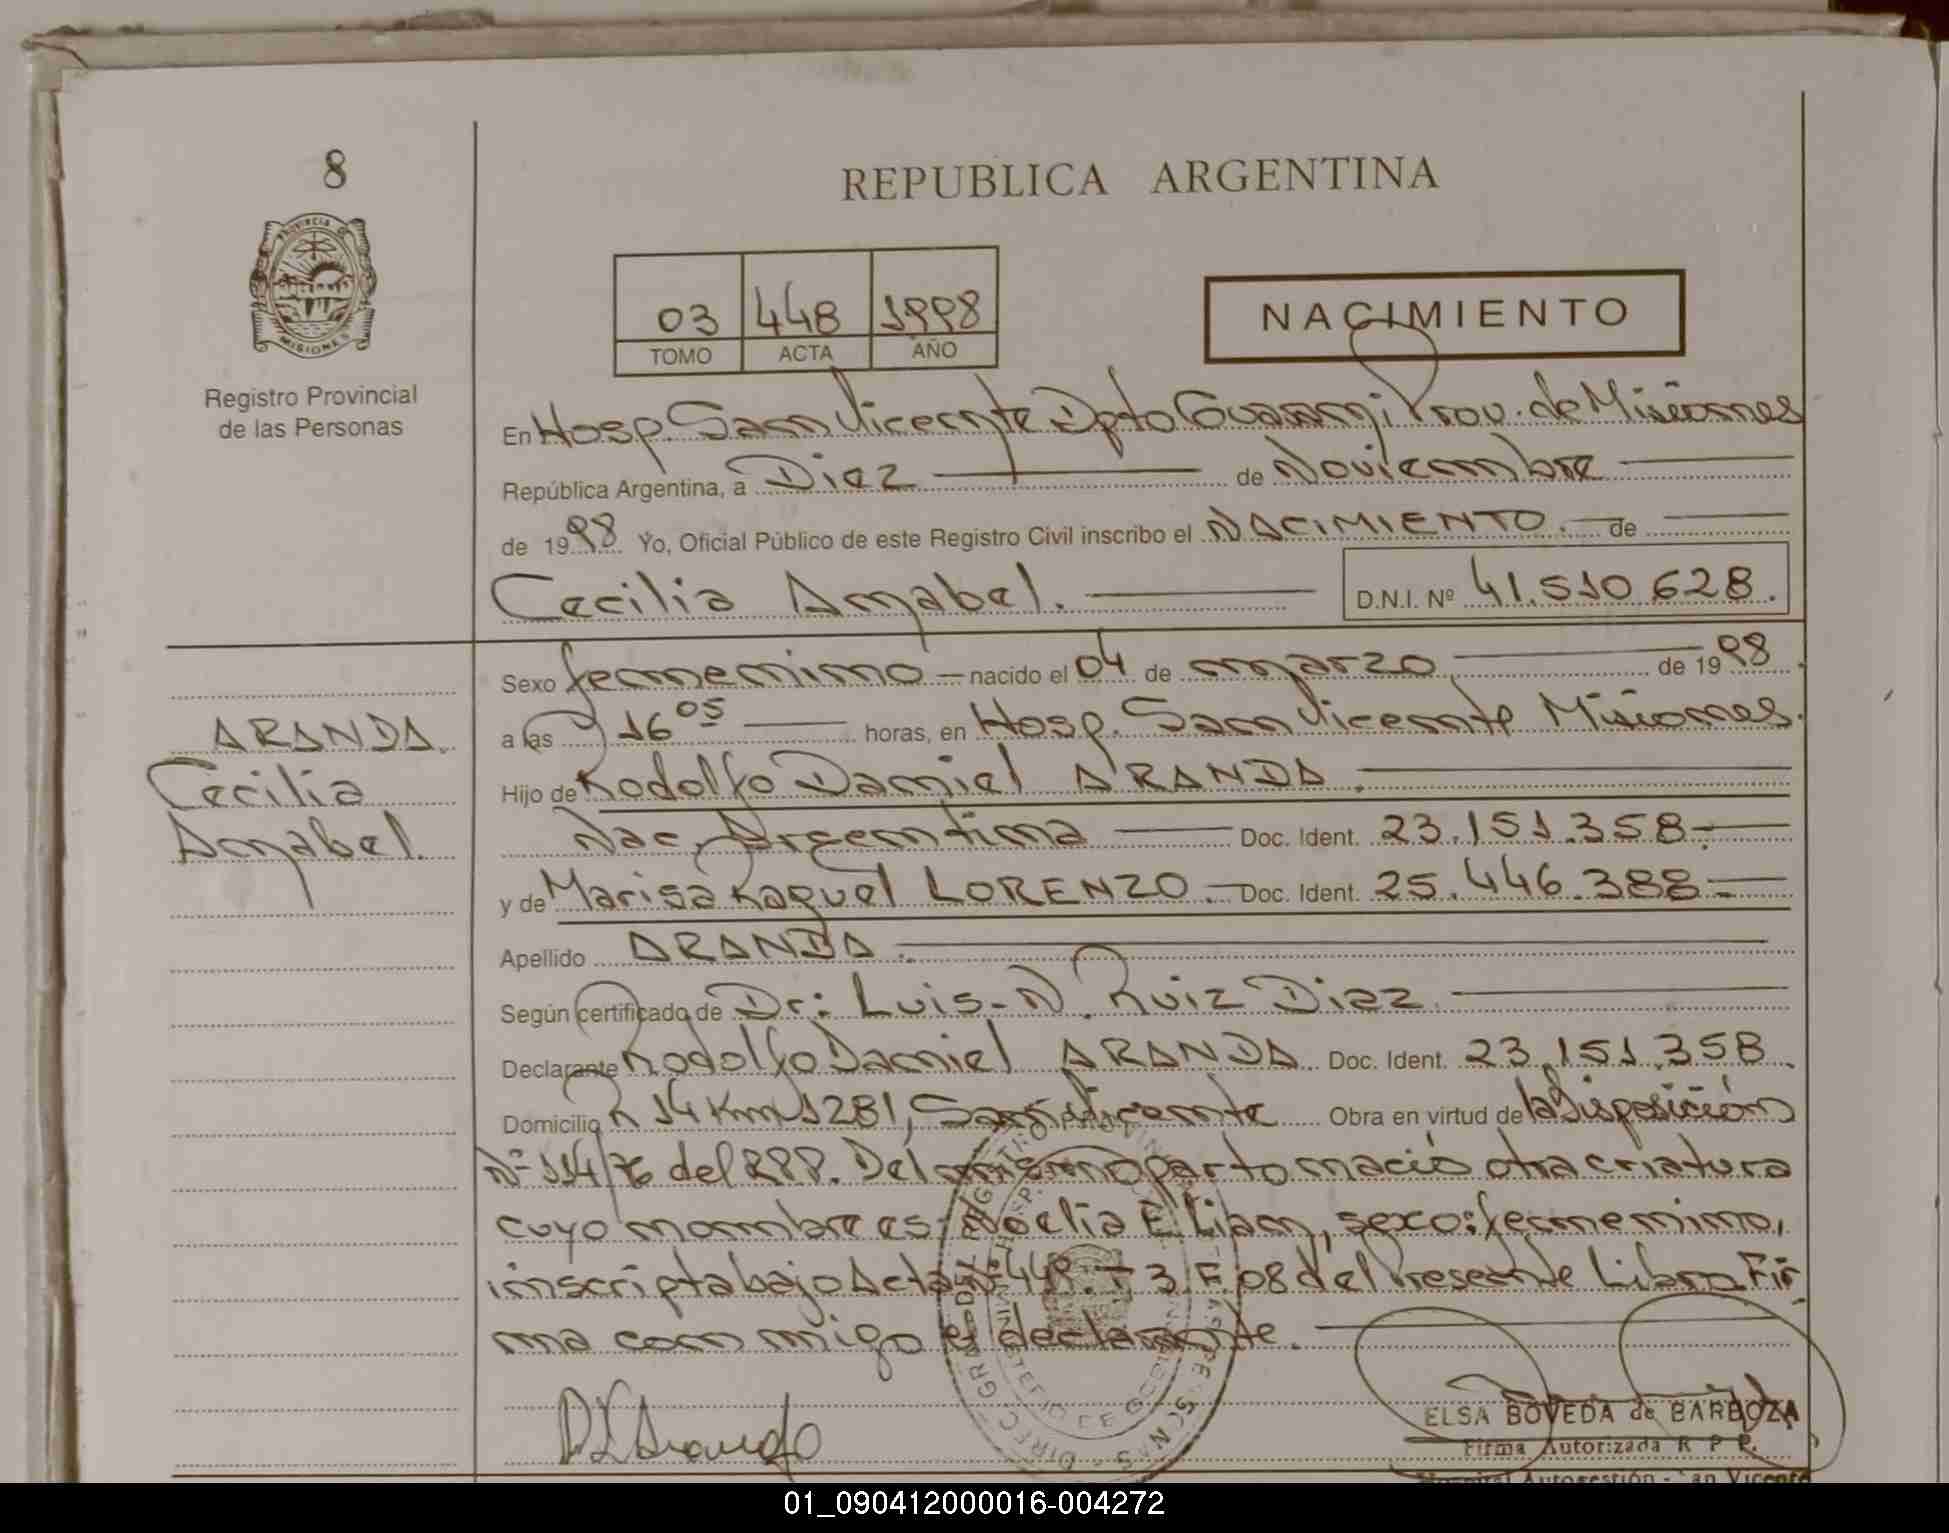 8
REPUBLICA ARGENTINA
PROVINCIA DE
MISIONES
Registro Provincial
de las Personas
03 448 1998
TOMO ACTA AÑO
NACIMIENTO
En Hosp. San Vicente Dpto Guarani Prov. de Misiones
República Argentina, a Diez de Noviembre
de 1998 Yo, Oficial Público de este Registro Civil inscribo el NACIMIENTO. de
Cecilia Anabel. D.N.I. Nº 41.510.628.
Sexo femenino nacido el 04 de marzo de 1998
ARANDA
Cecilia
Anabel.
a las 16 05 horas, en Hosp. San Vicente Misiones.
Hijo de Rodolfo Daniel ARANDA.
Nac. Argentina Doc. Ident. 23.151.358
y de Marisa Raquel LORENZO. Doc. Ident. 25.446.388
Apellido ARANDA.
Según certificado de Dr: Luis N. Ruiz Diaz.
Declarante Rodolfo Daniel ARANDA Doc. Ident. 23.151.358
Domicilio R 14 Km 1281, San Vicente Obra en virtud de la Disposición
Nº 114/76 del RPP. Del mismo parto nació otra criatura
cuyo nombre es: Noelia Elian, sexo: femenino,
inscripta bajo Acta 449. T 3. F. 08 del Presente Libro. Fir
ma con migo el declarante.
ELSA BOVEDA de BARBOZA
Firma Autorizada R P P.
Hospital Autogestión - San Vicente
01_090412000016-004272